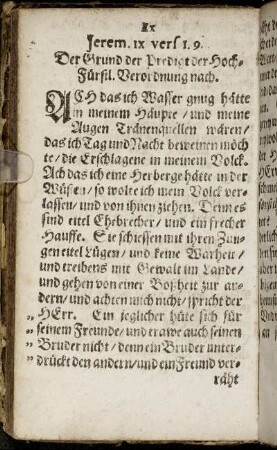 Ix
Jerem. ix vers 1. 9.
Der Grund der Predigt der Hoch-
Fürstl. Verordnung nach.
ACH das ich Wasser gnug hätte
in meinem Häupte / und meine
Augen Tränenquellen wären /
das ich Tag und Nacht beweinen möch
te / die Erschlagene in meinem Volck.
Ach das ich eine Herberge hätte in der
Wüsten / so wolte ich mein Volck ver-
lassen / und von ihnen ziehen. Denn es
sind eitel Ehebrecher / und ein frecher
Hauffe. Sie schiessen mit ihren Zun-
gen eitel Lügen / und keine Warheit /
und treibens mit Gewalt im Lande /
und gehen von einer Boßheit zur an-
dern / und achten mich nicht / spricht der
„ HErr. Ein jeglicher hüte sich für
„ seinem Freunde / und trawe auch seinen
„ Bruder nicht / denn ein Bruder unter-
„ drückt den andern / und ein Freund ver-
räht